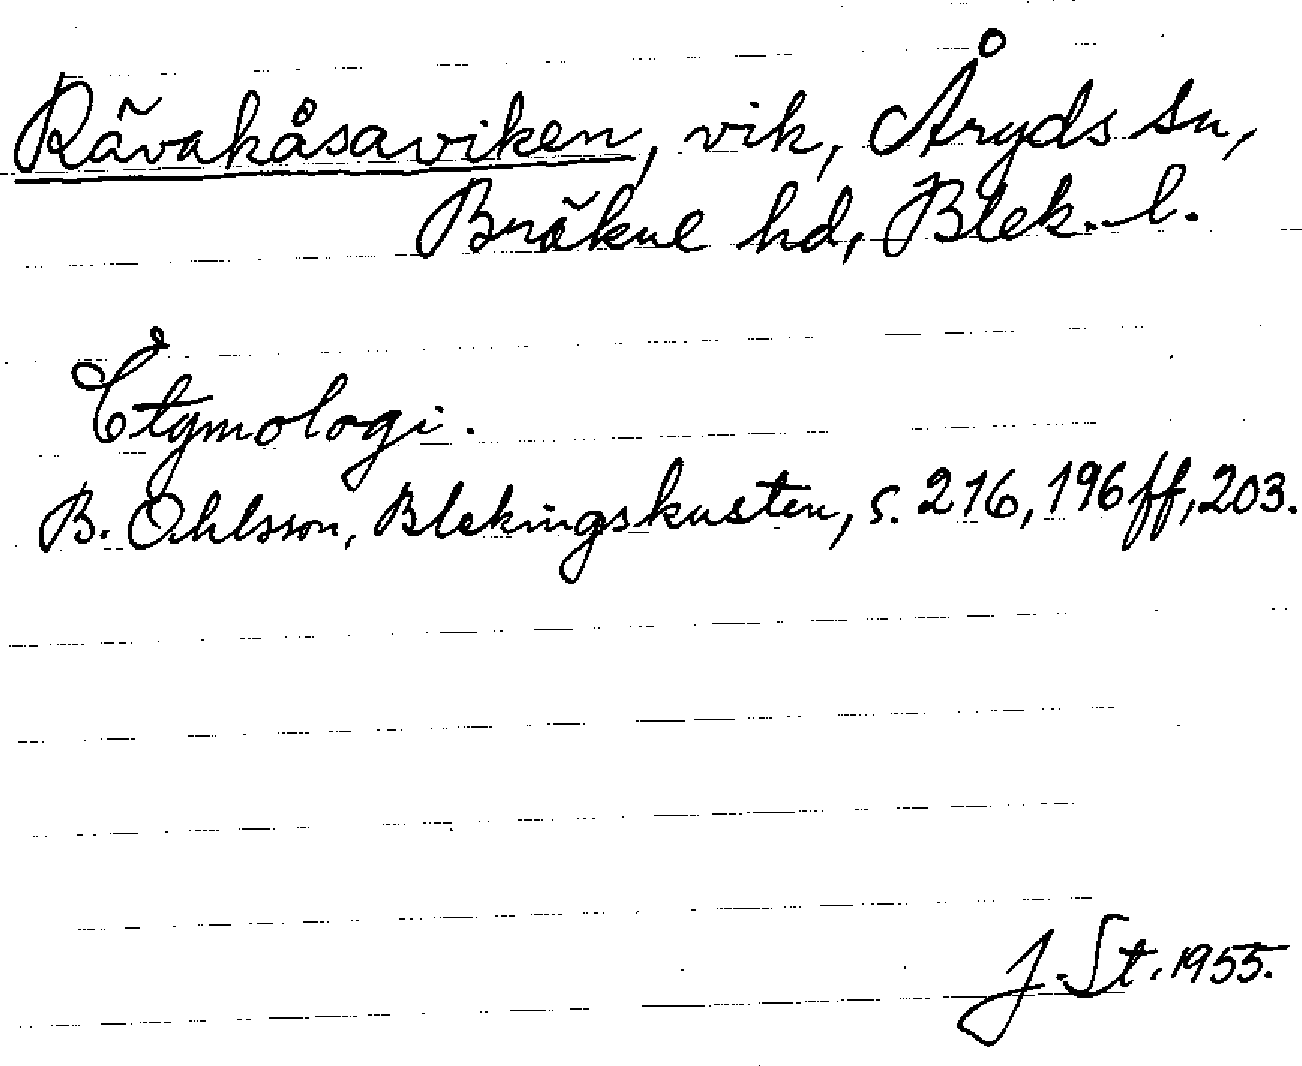 Rävahåsaviken, vik, Åryds sn,
Bräkne hd, Blek. l.
Etymologi.
B. Ohlsson, Blekingskusten, s. 216, 196 ff, 203.
J. St. 1955.